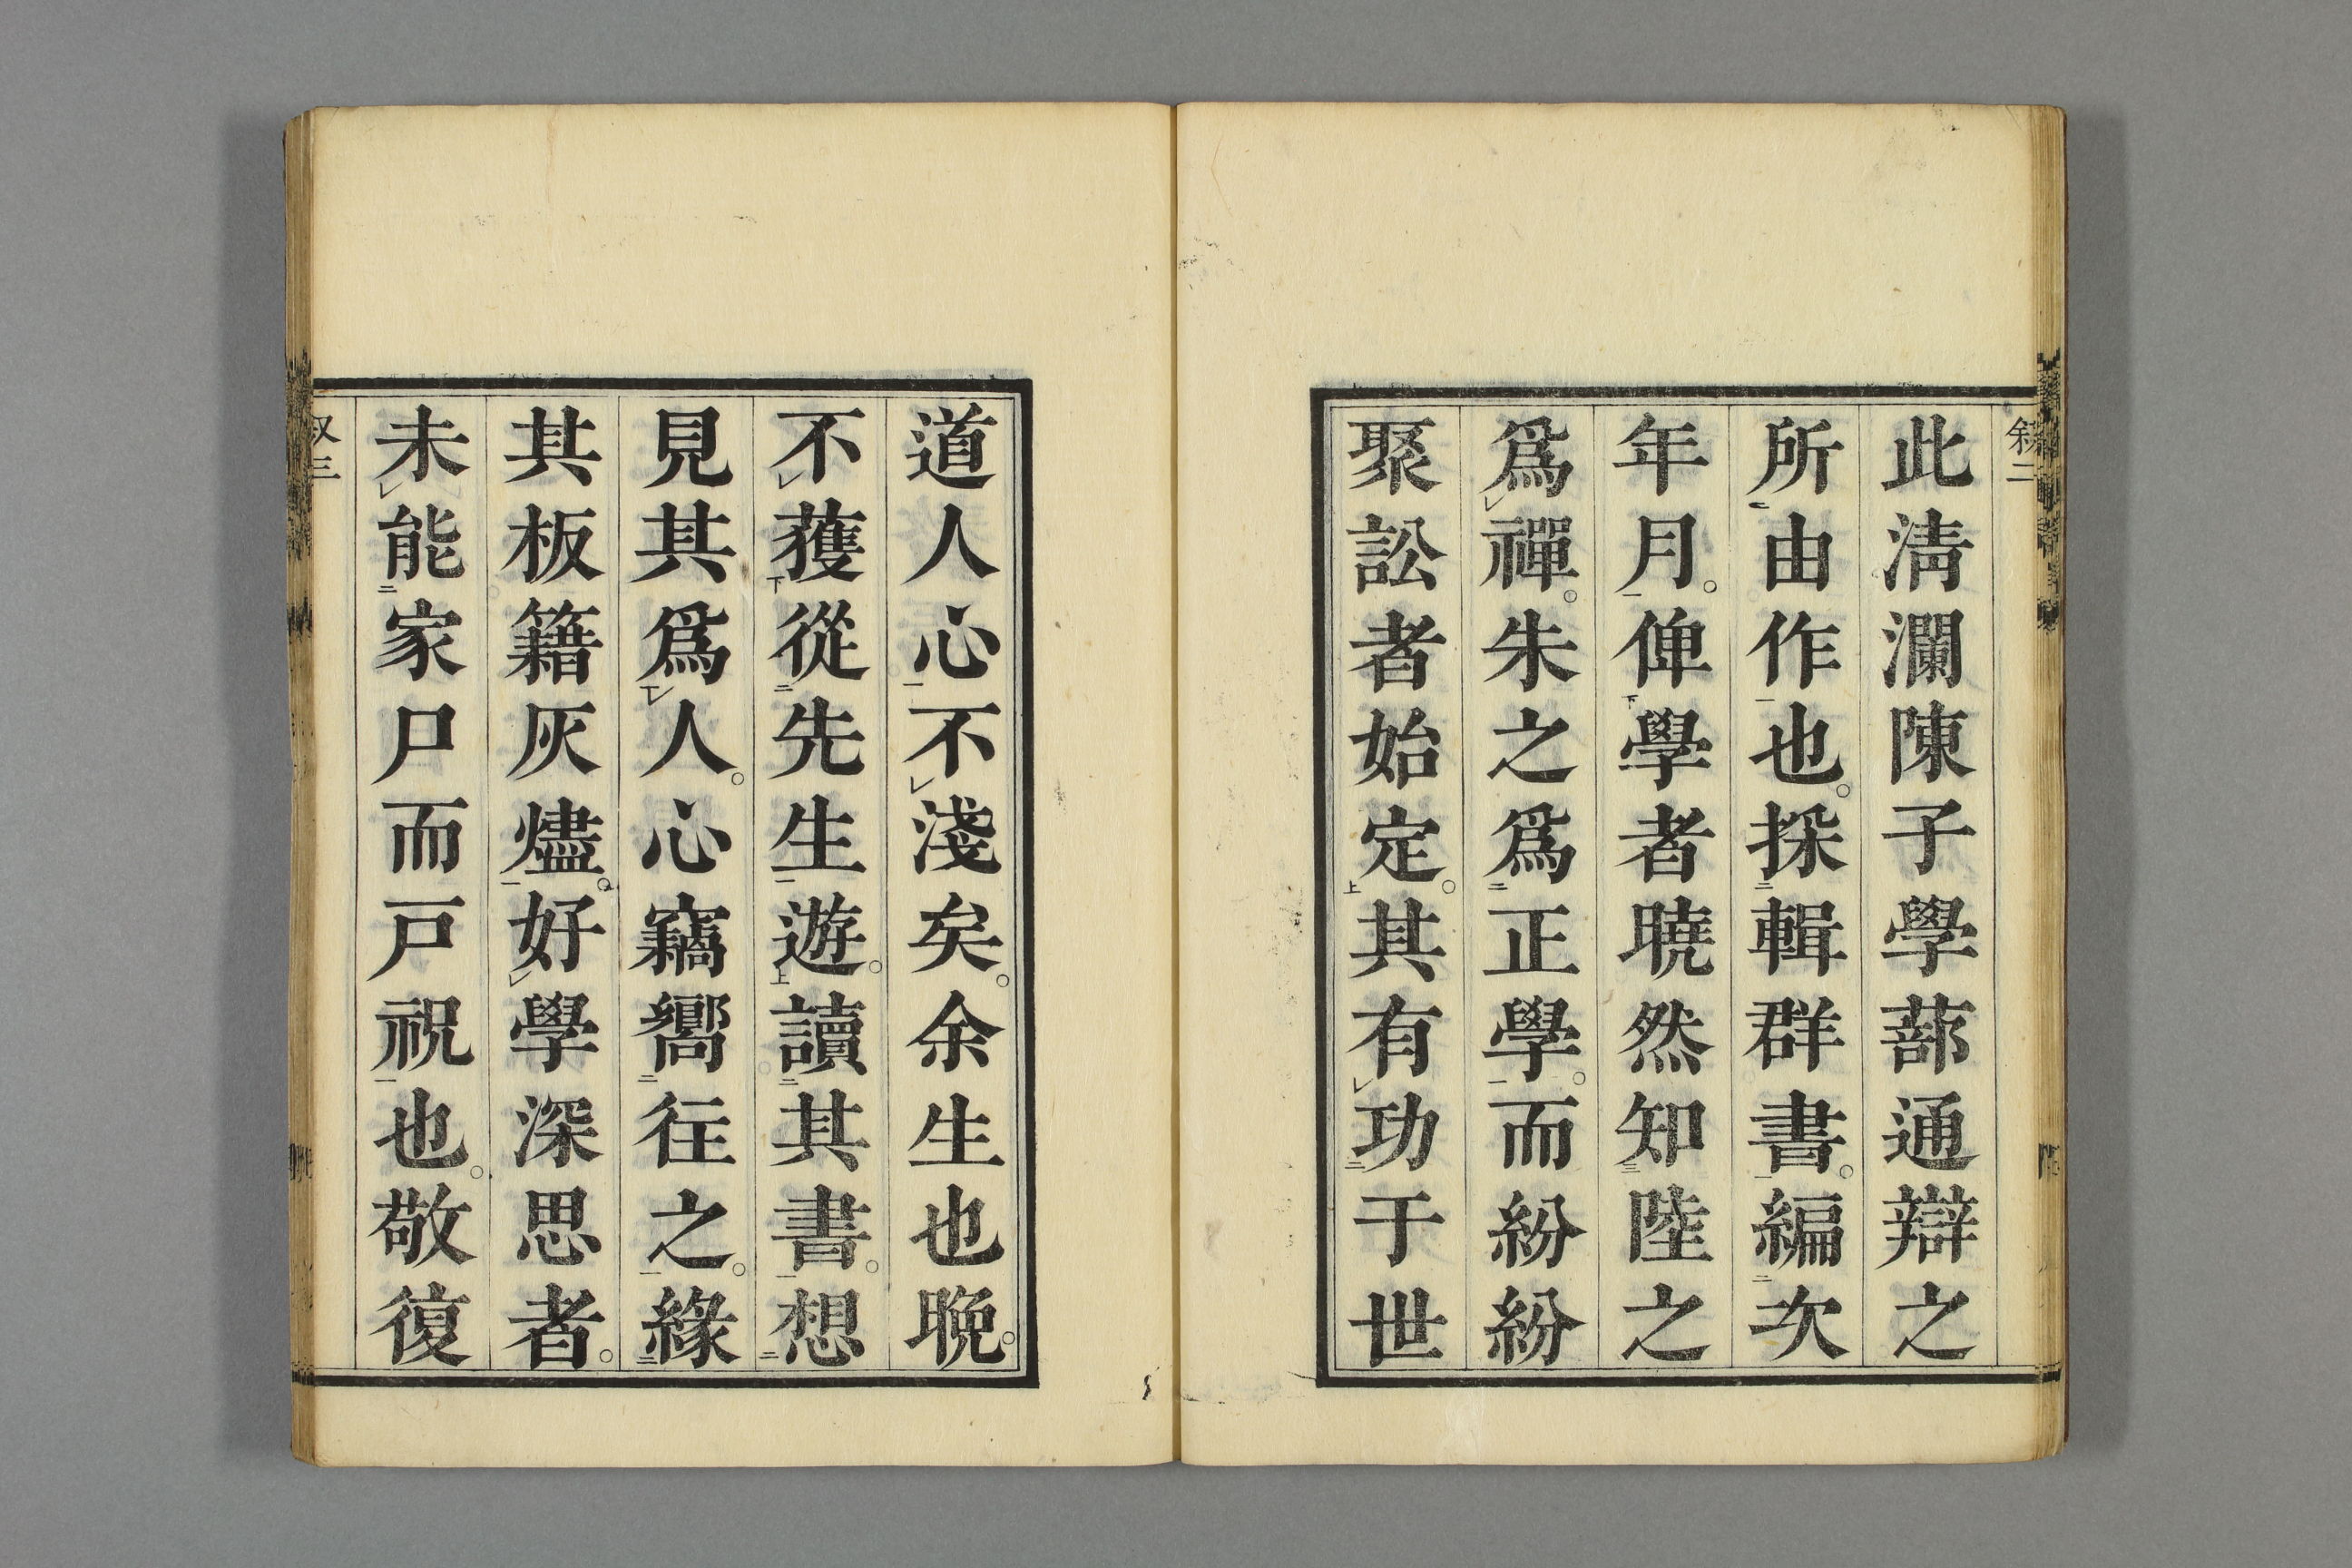 叙二
此淸瀾陳子學蔀通辯之
所由作也。採輯群書。編次
年月。俾學者曉然知陸之
爲禪。朱之爲正學。而紛紛
聚訟者始定。其有功于世
道人心不淺矣。余生也晩。
不獲從先生遊。讀其書。想
見其爲人。心竊嚮往之。緣
其板籍灰燼。好學深思者。
未能家尸而戸祝也。敬復
叙三